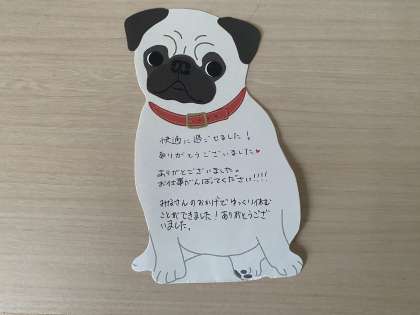 快適に過ごせました！
ありがとうございました♥
ありがとございました。
お仕事がんばってください!!!!
みなさんのおかげでゆっくり休む
ことができました！ありがとうござ
いました。